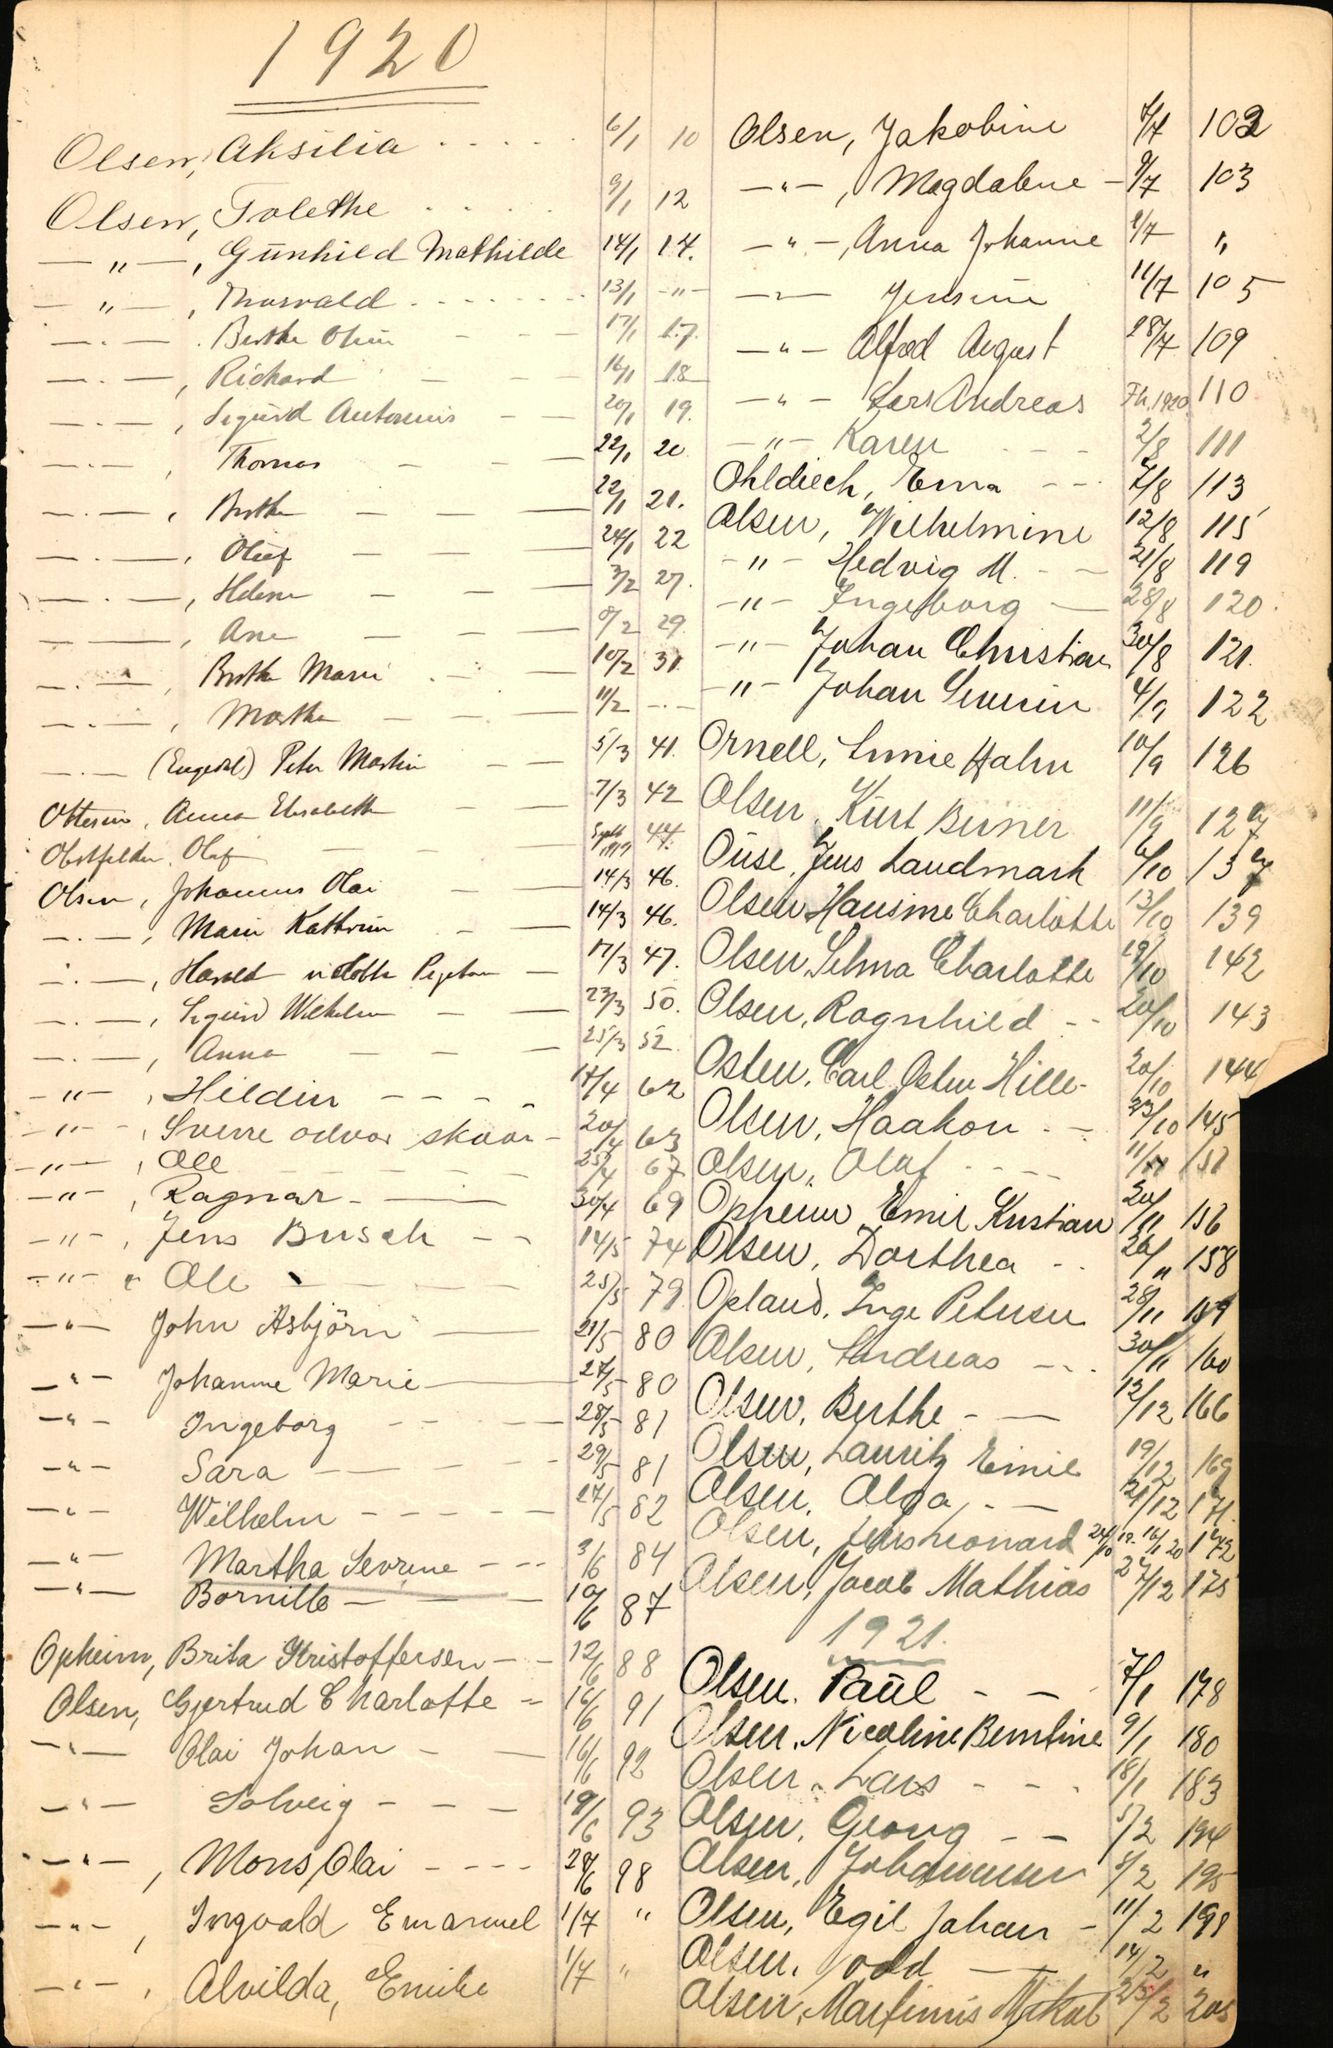 1920
Olsen, Aksilia . . . . 6/1 10
Olsen, Tolethe . . . . 9/1 12
—"—, Gunhild Mathilde 14/1 14.
—"—, Thorvald . . . . 13/1 -"-
—"— . Berthe 17/1 17.
—"—, Richard — — 18
—"—, Sigurd Antonius — — 20/1 19.
—"—, Thomas — — 22/1 20
—"—, Berthe — — 22/1 21.
—"—, Oluf — — 24/1 22
—"—, Helene — — 3/2 27.
—"—, Ane — — 8/2 29
—"—, Berthe Marie — 10/2 31.
—"—, Marthe — — 11/2 -"-
—"— (Engedal) Peter Martin — 5/3 41.
Ottesen, Anna Elisabeth — 7/3 42
Obstfelder, Olaf — 1919 44.
Olsen, Johannes Olai — 14/3 46.
—"—, Marie Kathrine — 14/3 46.
—"—, Harald 17/3 47.
—"—, Sigurd Wilhelm — 23/3 50.
—"—, Anna — — 25/3 52.
-"-, Hildin - - - - 62
-"-, Sverre odvar skaar - 20/4 63
-"-, Ole - - - 67
-"-, Ragnar - — 30/4 69
-"-, Jens Busch - - 14/5 74
-"- Ole — 25/5 79
-"- John Asbjörn — 21/5 80
-"- Johanne Marie — 27/5 80
-"- Ingeborg - - - - 28/5 81
-"- Sara - - - - 29/5 81
-"- Wilhelm - - - - 27/5 82
-"- Martha Sevrine - - - 3/6 84
-"- Bornille - - - 10/6 87
Opheim, Brita Kristoffersen - - 12/6 88
Olsen, Gjertrud Charlotte - 16/6 91
-"- Olai Johan - — 16/6 92
-"- Solveig - - - 19/6 93
-"-, Mons Olai - - - - 28/6 98
-"-, Ingvald Emanuel 1/7 "
-"-, Alvilda, Emilie 1/7 "
Olsen, Jakobine 7/7 102
-"-, Magdalene - 9/7 103
-"-, Anna Johanne 8/7 "
-"- Jensine 11/7 105
-"- Alfred August 28/7 109
-"- Lars Andreas 1920 110
-"- Karen - - - 2/8 111
Ohldiech, Erna - - 7/8 113
Olsen, Wilhelmine 12/8 115
-"- Hedvig M. - - 21/8 119
-"- Ingeborg — 28/8 120.
-"- Johan Christian 30/8 121.
-"- Johan Severin 4/9 122
Ornell, Hahn 10/9 126
Olsen, Kurt Berner 11/9 127
Ouse, Jens Landmark 6/10 137
Olsen, Hansine Charlotte 13/10 139
Olsen, Selma Charlotte 19/10 142
Olsen, Ragnhild - - 20/10 143
Osten, Carl Osten Hille- 20/10 144
Olsen, Haakon - - 23/10 145
Olsen, Olaf - - - 11/11 151
Opheim Emil Kristian 20/11 156
Olsen, Dorthea - - 26/11 158
Opland, Inge Petersen 28/11 159
Olsen, Andreas - - - 30/11 160
Olsen, Berthe - — 12/12 166
Olsen, Lauritz Emil 19/12 169
Olsen, Olga, - — 21/12 171.
Olsen, Jens Leonard 24/10 19. 16/1 20 172
Olsen, Jacob Mathias 27/12 175
1921.
Olsen. Paul - — 7/1 178
Olsen, Nicoline Berntine 9/1 180
Olsen, Lars - - - 18/1 183
Olsen, Georg - — 5/2 194
Olsen, Johannesen 5/2 195
Olsen, Egil Johan - 11/2 198
Olsen, odd — 14/2 "
Olsen, Martinius 25/2 205